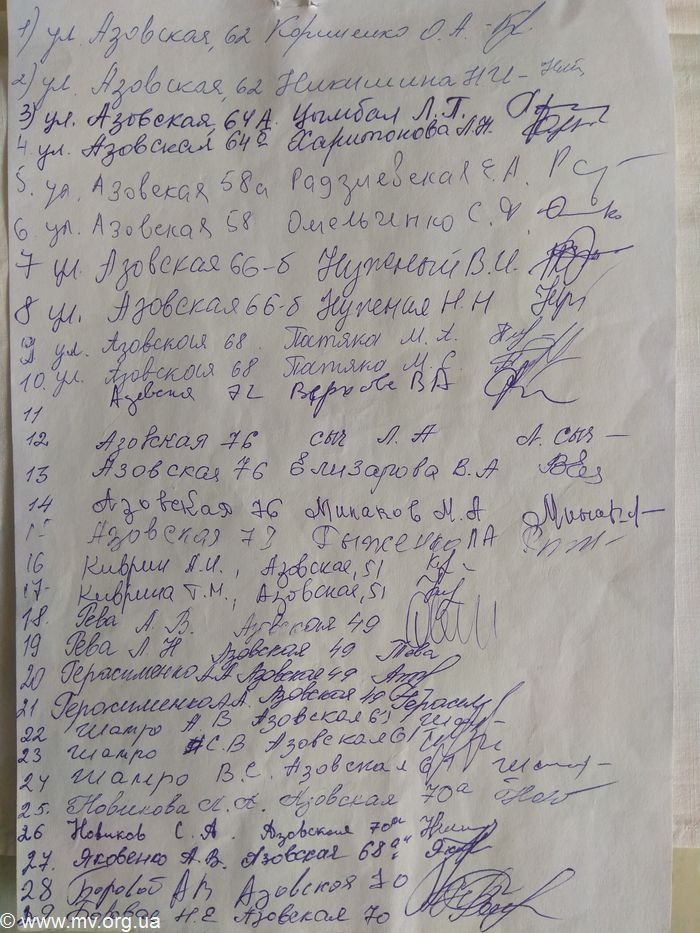 1) ул. Азовская, 62 Корниенко О. А. -
2) ул. Азовская, 62 Никишина Н И -
3) ул. Азовская, 64 А. Цымбал Л. П.
4. ул. Азовская 64а Харитонова Л. Н.
5. ул, Азовская 58а Радзиевская Е. А.
6 ул. Азовская 58 Омельченко С. Ф.
7 ул. Азовская 66-б Нужный В. И.
8 ул. Азовская 66-б Нужная Н. Н
9 ул. Азовская 68. Патяка М. А.
10. ул. Азовская 68 Патяка М. С.
11 Азовская 72
12. Азовская 76 сыч Л. А Л. сыч -
13 Азовская 76 Елизарова В. А
14 Азовская 76 Минаков М. А
15 Азовская 73 Гыженко ЛА
16 Киврин А. И., Азовская, 51
17 Киврина Т. М., Азовская, 51
18. Рева А. В. Азовская 49
19 Рева Л Н Азовская 49
20 Герасименко А А Азовская 49
21 Герасименко А. А. Азовская 49
22 Шамро А В Азовская 61
23 Шамро С. В Азовская 61
24 Шамро В. С. Азовская 61
25. Новикова Азовская 70а
26 Новиков С. А. Азовская 70а
27. Яковенко А. В. Азовская 68"а"
28 Боровой А В Азовская 70
29 Боровая Н. Е Азовская 70
© www.mv.org.ua